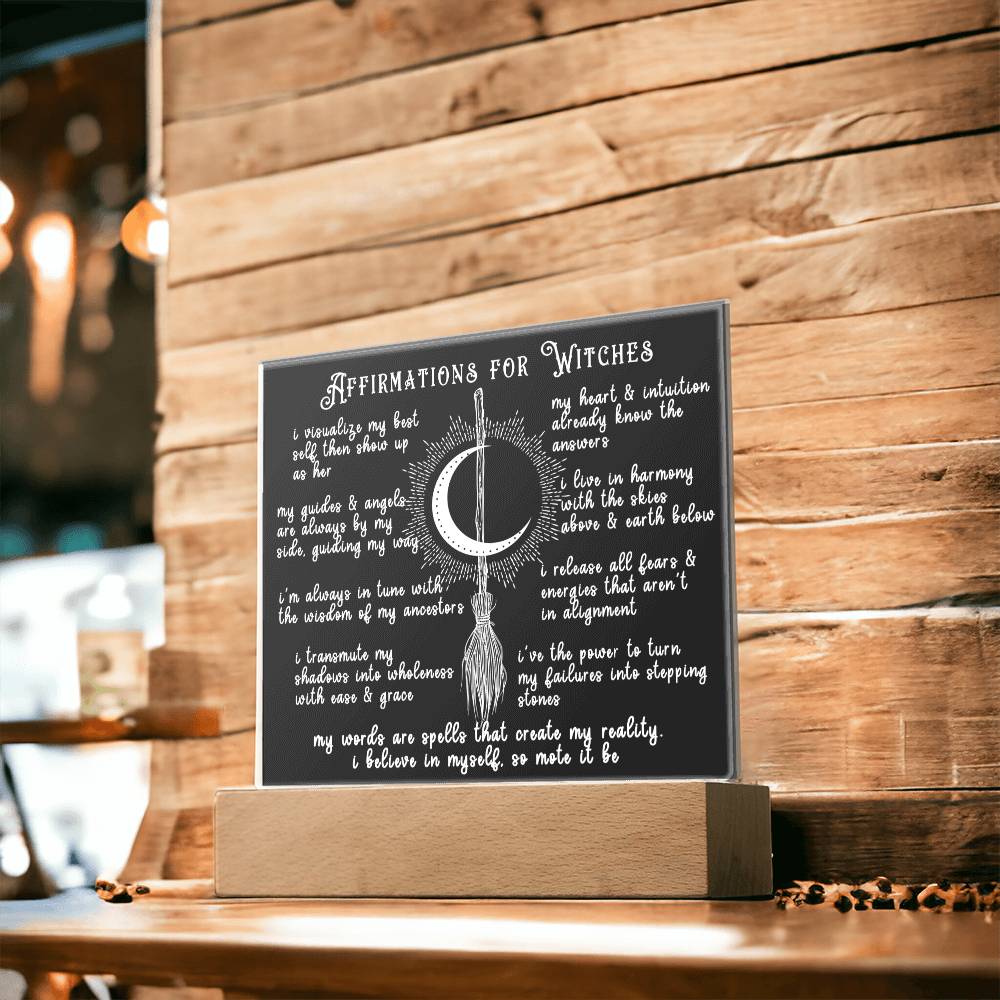 Affirmations for Witches
i visualize my best
self then show up
as her
my guides & angels
are always by my
side, guiding my way
i'm always in tune with
the wisdom of my ancestors
i transmute my
shadows into wholeness
with ease & grace
my heart & intuition
already know the
answers
i live in harmony
with the skies
above & earth below
i release all fears &
energies that aren't
in alignment
i've the power to turn
my failures into stepping
stones
my words are spells that create my reality.
i believe in myself, so mote it be